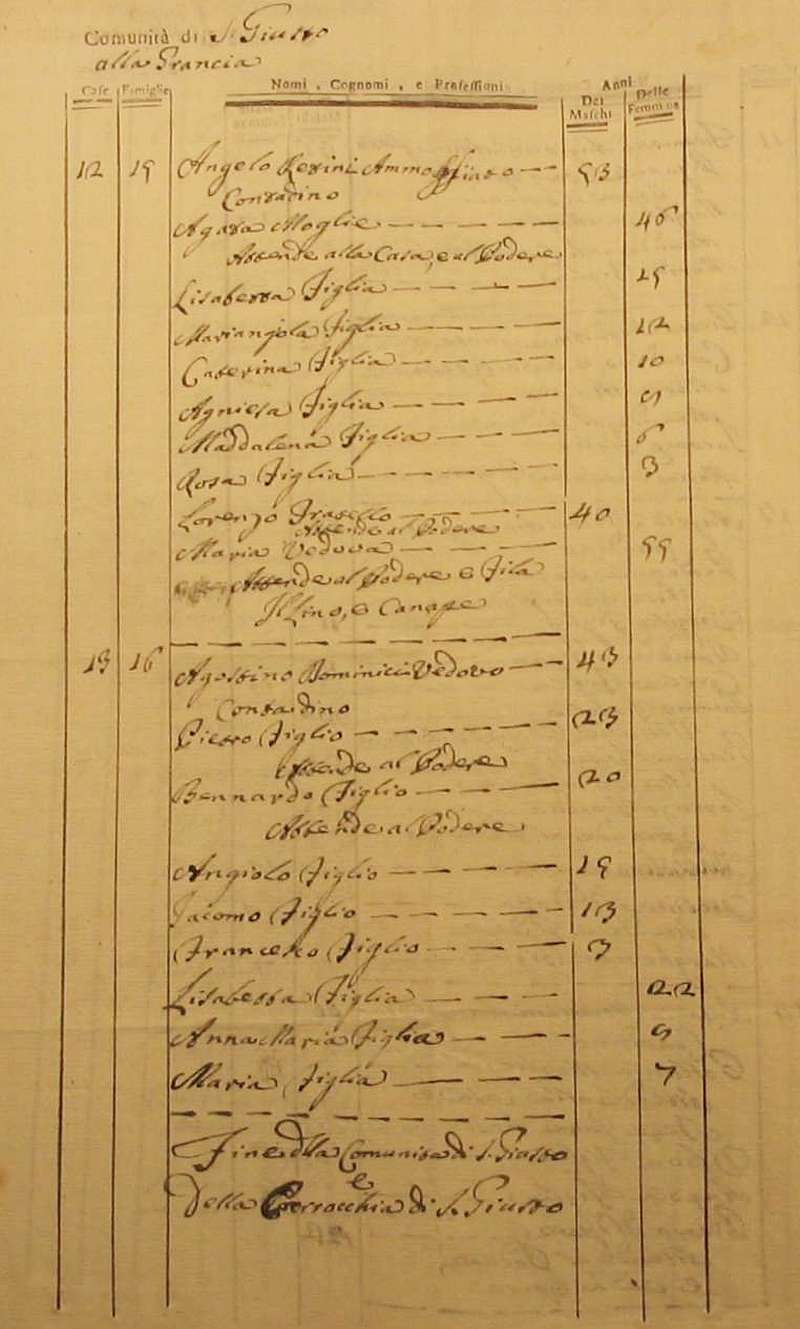 Comunità di S. Giusto
alla Francia
Case Famiglie Nomi, Cognomi, e Professioni Anni Dei Maschi Delle Femmine
12 15 Angelo Ammogliato 53
Contadino
Agata Moglie 46
Attende alla Casa, e al Podere
Lisabetta Figlia 15
Mariangiola Figlia 12
Caterina Figlia 10
Agniesa Figlia 9
Maddalena Figlia 6
Rosa Figlia 3
Lorenzo Fratello 40
Attende al Podere
Maria Vedova 55
Attende al Podere e Fila
Lino, e Canape
13 16 Agostino Dominici Vedovo 43
Contadino
Pietro Figlio 23
Attende al Podere
Bernardo Figlio 20
Attende al Podere
Angiolo Figlio 15
Giacomo Figlio 13
Francesco Figlio
Lisabetta Figlia 22
Anna Maria Figlia 9
Maria Figlia 7
Fine della Comunità di S. Giusto
e
Della Parrocchia di S. Giusto